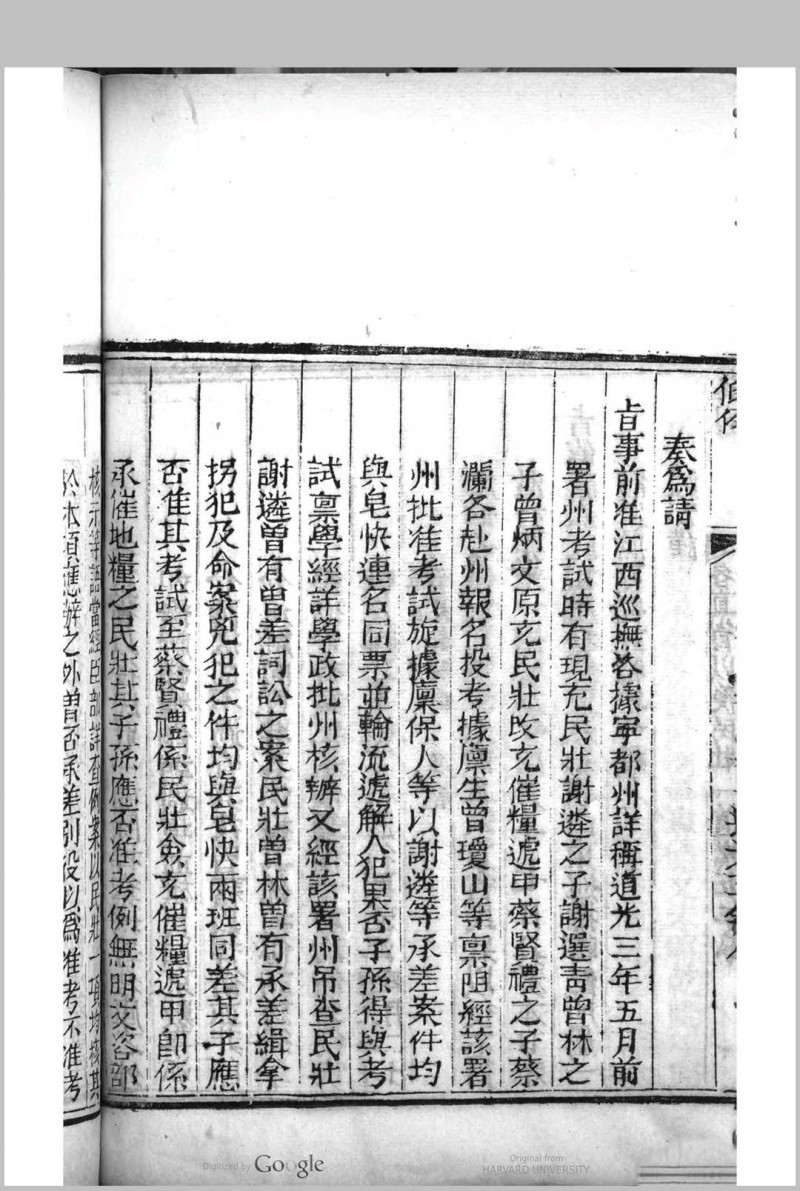 奏爲請
旨事前准江西巡撫咨據寧都州詳稱道光三年五月前
署州考試時有現充民壯謝遴之子謝選靑曾林之
子曾炳文原充民壯改充催糧遞甲蔡賢禮之子蔡
瀾各赴州報名投考據廪生曾瓊山等禀阻經該署
州批准考試旋據廪保人等以謝遴等承差案件均
與皂快連名同票並輪流遞解人犯果否子孫得與考
試禀學經詳學政批州核辦又經該署州吊查民壯
謝遴曾有曾差詞訟之案民壯曾林曾有承差緝拿
拐犯及命案兇犯之件均與皂快兩班同差其子應
否准其考試至蔡賢禮係民壯僉充催糧遞甲卽係
承催地糧之民壯其子孫應否准考例無明文咨部
核示等語當經臣部詳查例案以民壯一項均核其
於本項應辦之外曾否承差別役以爲准考不准考
Digitized by Google
Original from
HARVARD UNIVERSITY